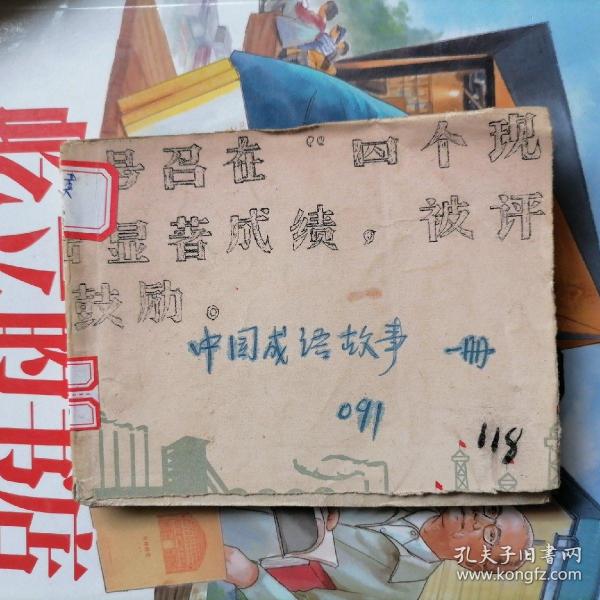 号召在“四个现
显著成绩，被评
鼓励。
中国成语故事 一册
091
118
的书店
孔夫子旧书网
www.kongfz.com